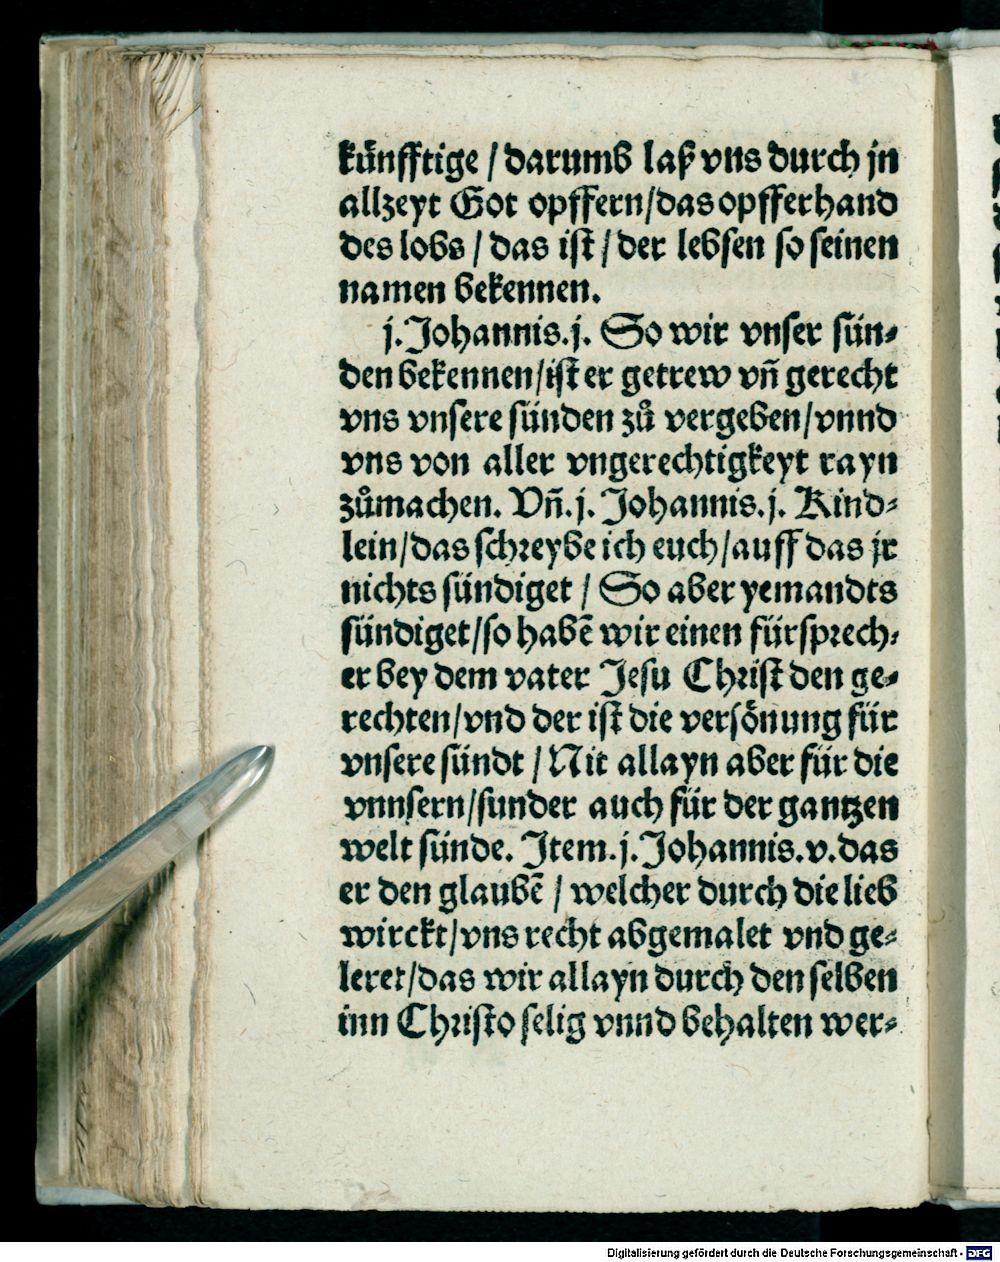 kuͤnfftige / darumb laß vns durch jn
allzeyt Got opffern/das opfferhand
des lobs / das ist / der lebsen so seinen
namen bekennen.
j. Johannis. j. So wir vnser sün⸗
den bekennen/ist er getrew vñ gerecht
vns vnsere sünden zů vergeben/vnnd
vns von aller vngerechtigkeyt rayn
zůmachen. Vñ. j. Johannis. j. Kind⸗
lein/das schreybe ich euch/auff das jr
nichts sündiget / So aber yemandts
sündiget/so habẽ wir einen fürsprech⸗
er bey dem vater Jesu Christ den ge⸗
rechten/vnd der ist die versoͤnung für
vnsere sündt / Nit allayn aber für die
vnnsern/sunder auch für der gantzen
welt sünde. Item. j. Johannis. v. das
er den glaubẽ / welcher durch die lieb
wirckt/vns recht abgemalet vnd ge⸗
leret/das wir allayn durch den selben
inn Christo selig vnnd behalten wer⸗
Digitalisierung gefördert durch die Deutsche Forschungsgemeinschaft - DFG